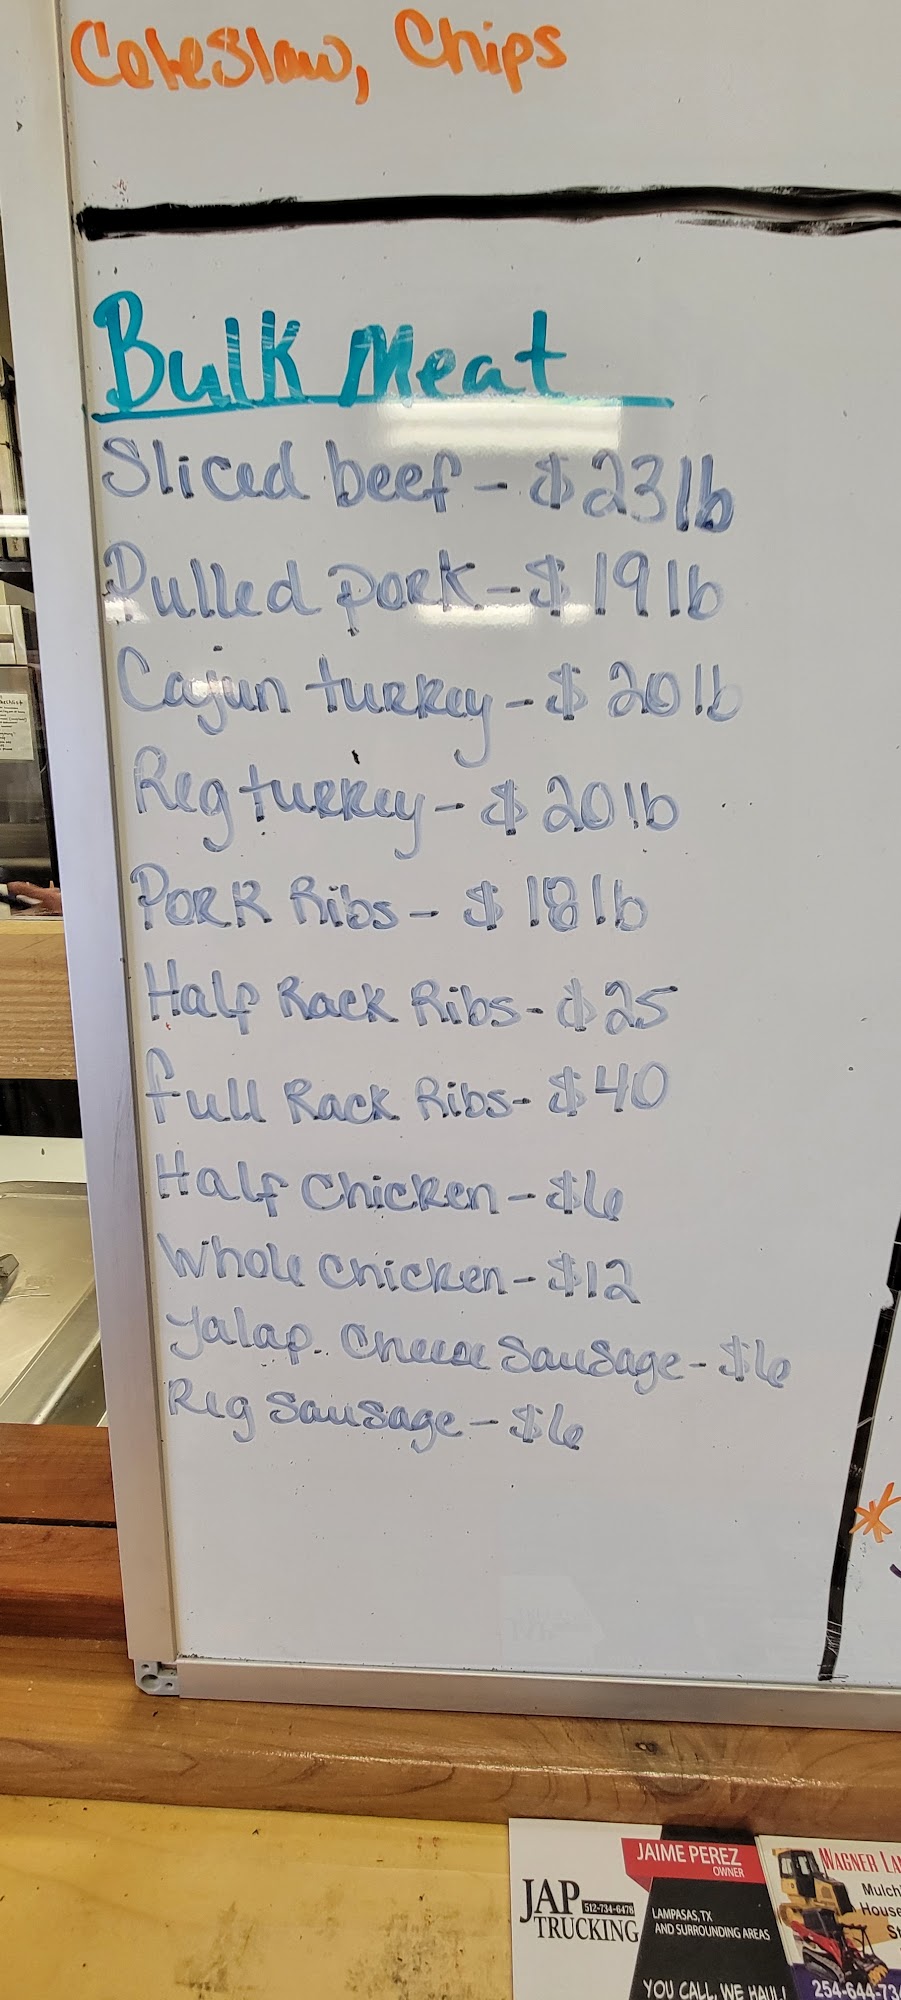 Coleslaw, Chips
Bulk Meat
Sliced beef - $23 lb
Pulled pork - $19 lb
Cajun turkey - $20 lb
Reg turkey - $20 lb
Pork Ribs - $18 lb
Half Rack Ribs - $25
Full Rack Ribs - $40
Half Chicken - $6
Whole Chicken - $12
Jalap. Cheese Sausage - $6
Reg Sausage - $6
JAIME PEREZ
OWNER
JAP
512-734-6478
TRUCKING
LAMPASAS, TX
AND SURROUNDING AREAS
YOU CALL, WE HAUL!
WAGNER
Mulch
House
254-644-73